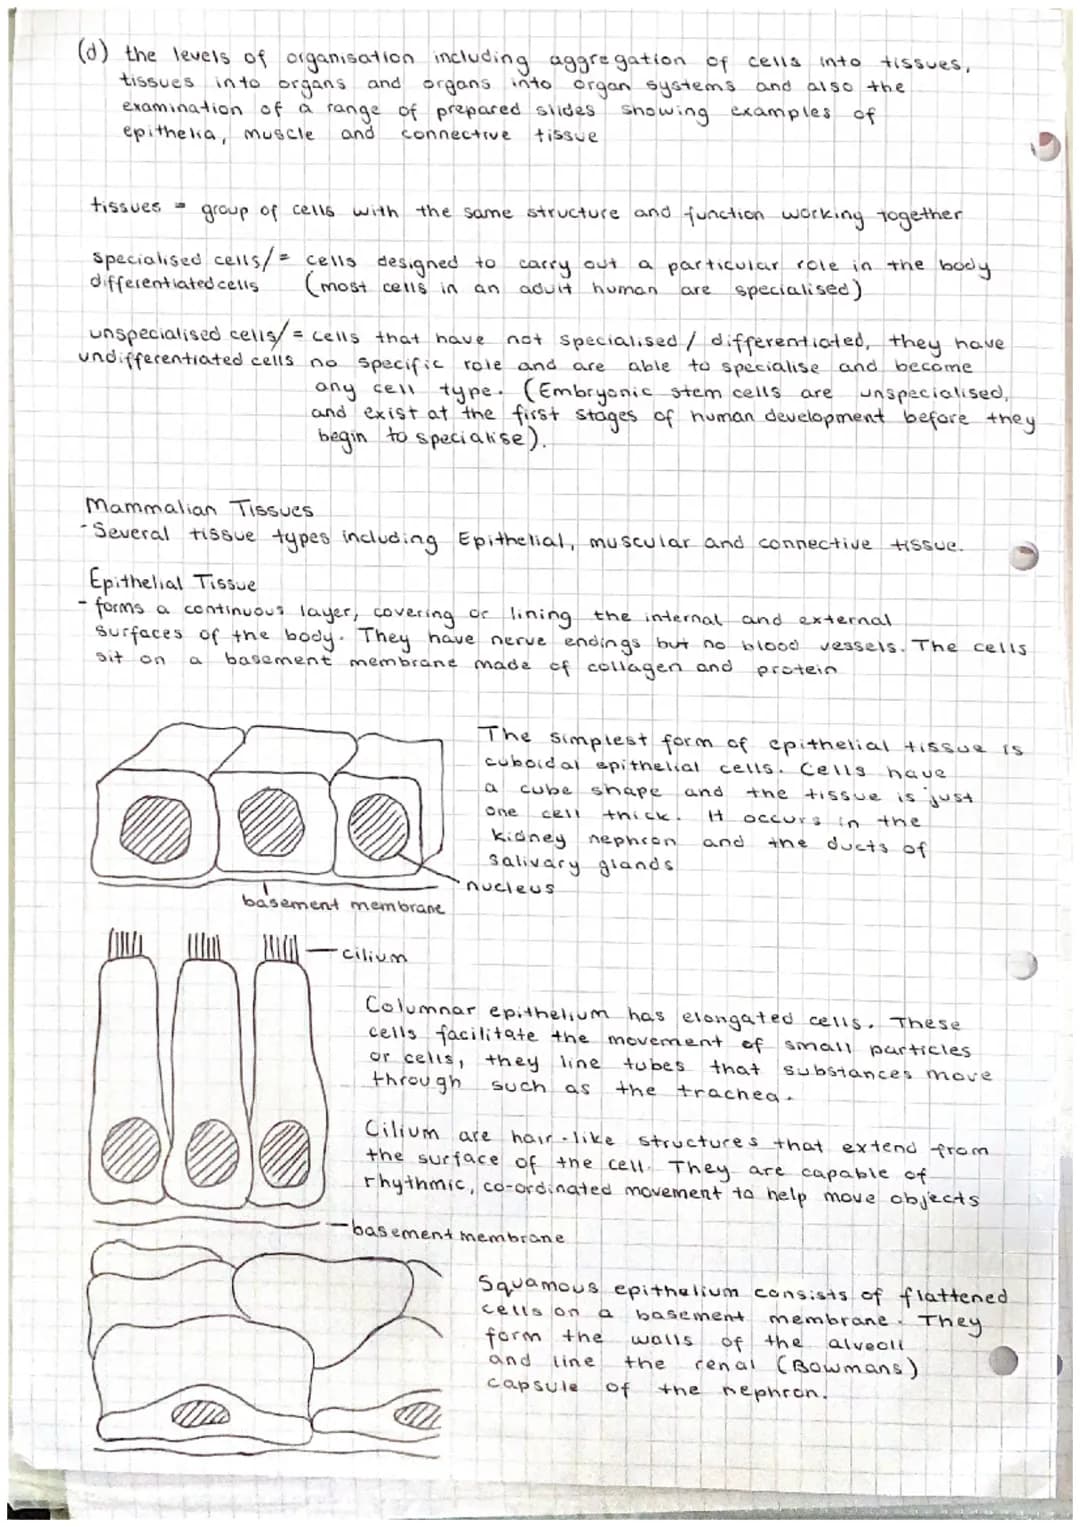 (d) the levels of organisation including aggregation of cells into tissues,
tissues into organs and organs into organ systems and also the
examination of a range of prepared slides showing examples of
epithelia, muscle and connective tissue
tissues = group of cells with the same structure and function working together
specialised cells/ = cells designed to carry out a particular role in the body
differentiated cells (most cells in an adult human are specialised)
unspecialised cells/ = cells that have not specialised / differentiated, they have
undifferentiated cells no specific role and are able to specialise and become
any cell type. (Embryonic stem cells are unspecialised,
and exist at the first stages of human development before they
begin to specialise).
Mammalian Tissues
- Several tissue types including Epithelial, muscular and connective tissue.
Epithelial Tissue
- forms a continuous layer, covering or lining the internal and external
surfaces of the body. They have nerve endings but no blood vessels. The cells
sit on a basement membrane made of collagen and protein
The simplest form of epithelial tissue is
cuboidal epithelial cells. Cells have
a cube shape and the tissue is just
one cell thick. It occurs in the
kidney nephron and the ducts of
salivary glands
nucleus
basement membrane
cilium
Columnar epithelium has elongated cells. These
cells facilitate the movement of small particles
or cells, they line tubes that substances move
through such as the trachea.
Cilium are hair-like structures that extend from
the surface of the cell. They are capable of
rhythmic, co-ordinated movement to help move objects
basement membrane
Squamous epithelium consists of flattened
cells on a basement membrane. They
form the walls of the alveoli
and line the renal (Bowmans)
capsule of the nephron.